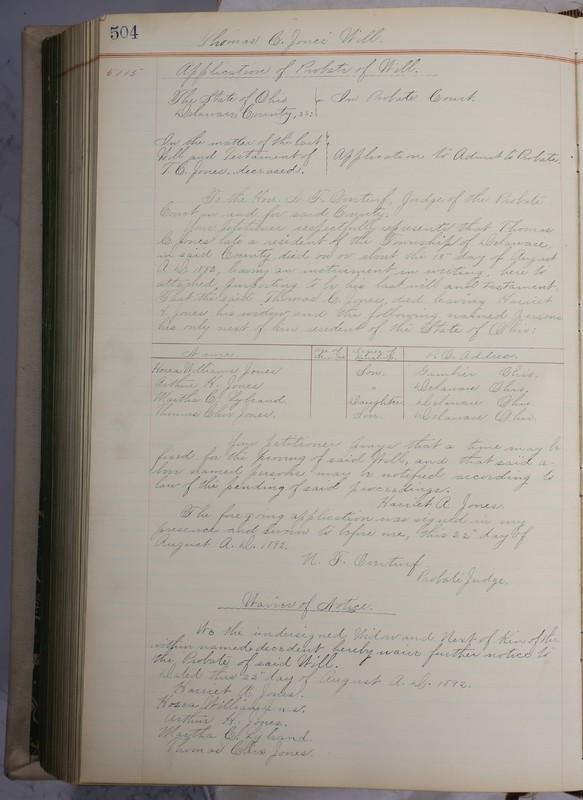 504
Thomas C. Jones' Will.
5115
Application of Probate of Will.
The State of Ohio
Delaware County, ss:
In Probate Court.
In the matter of the last
Will and Testament of
T. C. Jones, deceased.
Application to Admit to Probate.
To the Hon. N. F. Overturf, Judge of the Probate
Court in and for said County.
Your petitioner respectfully represents that Thomas
C. Jones late a resident of the Township of Delaware
in said County, died on or about the 18" day of August
A. D. 1892, leaving an instrument in writing, here to
attached, purporting to be his last will and testament;
That the said Thomas C. Jones, died leaving Harriet
A. Jones his widow and the following named persons
his only next of kin resident of the State of Ohio:
Name.
Age of
Degree of
P. O. Address.
Hosea Williams Jones Son. Gambier Ohio.
Arthur H. Jones " Delaware Ohio.
Martha C. Lybrand. Daughter Delaware Ohio
Thomas Jones. Son. Delaware Ohio.
Your petitioner prays that a time may be
fixed for the proving of said Will, and that said a-
bove named persons may be notified according to
law of the pending of said proceedings.
Harriet A. Jones.
The foregoing application was signed in my
presence and sworn to before me, this 22" day of
August A. D. 1892.
N. F. Overturf,
Probate Judge.
Waiver of Notice.
We the undersigned, Widow and Next of Kin of the
within named decedent, hereby waive further notice to
the Probate of said Will.
Dated this 22" day of August A. D. 1892.
Harriet A. Jones.
Hosea Williams
Arthur H. Jones.
Martha C. Lybrand.
Thomas Jones.